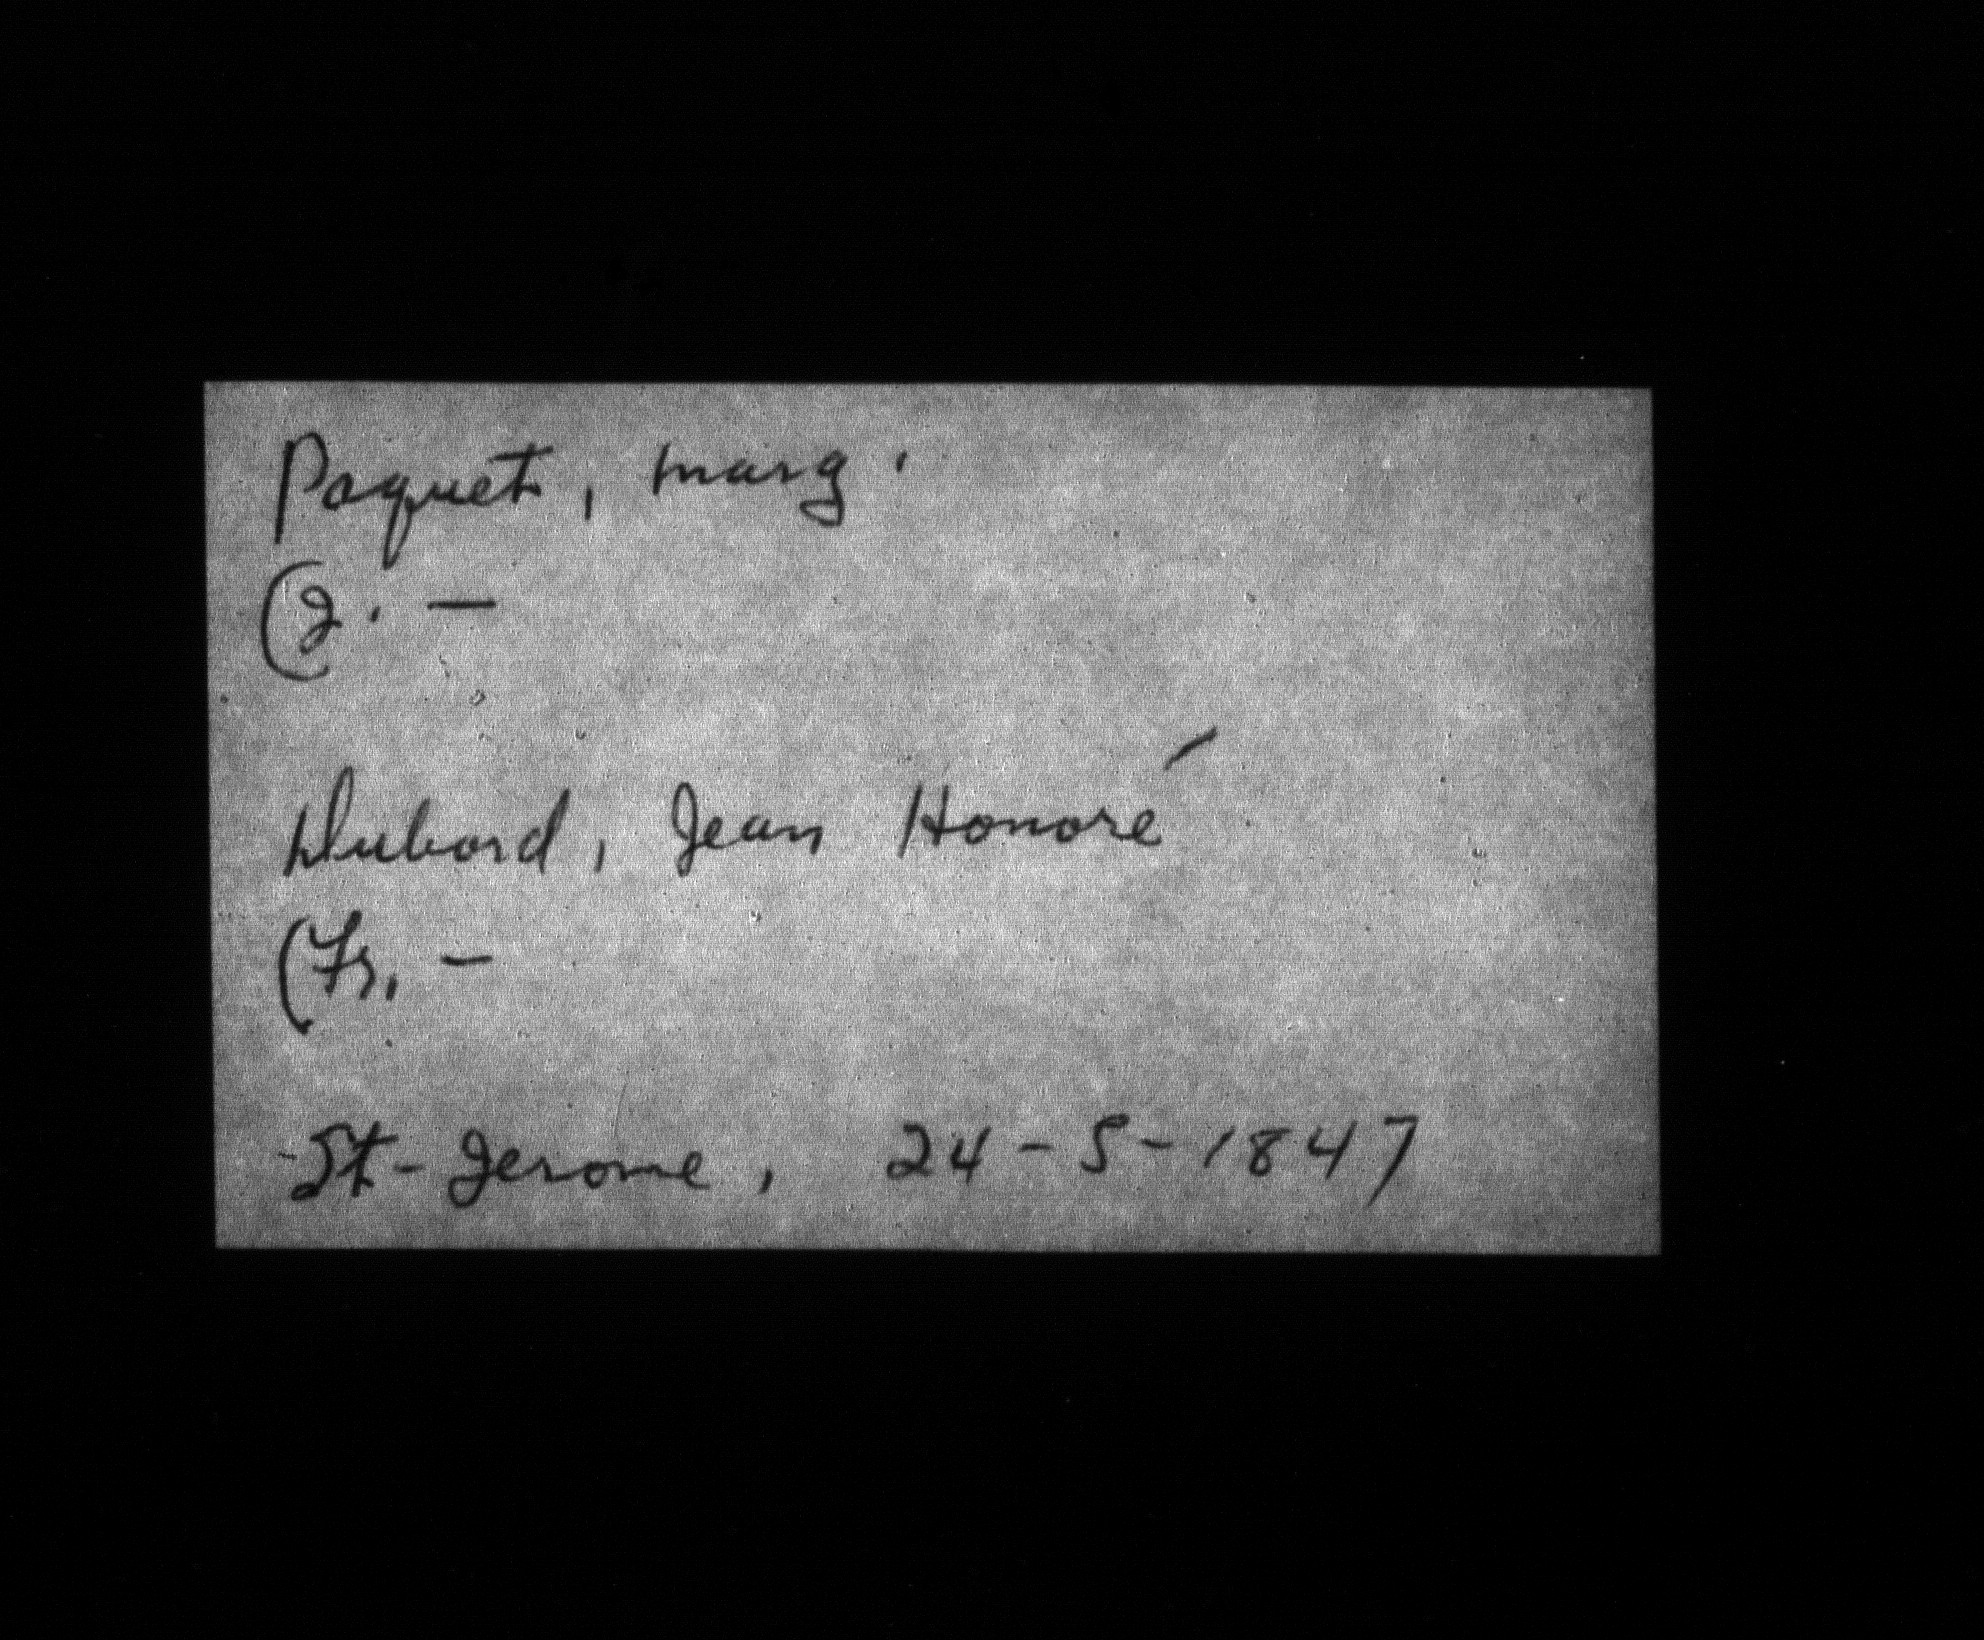 Paquet, Marg.
(J. —
Dubord, Jean Honoré
(Fr. —
St-Jerome, 24-5-1847